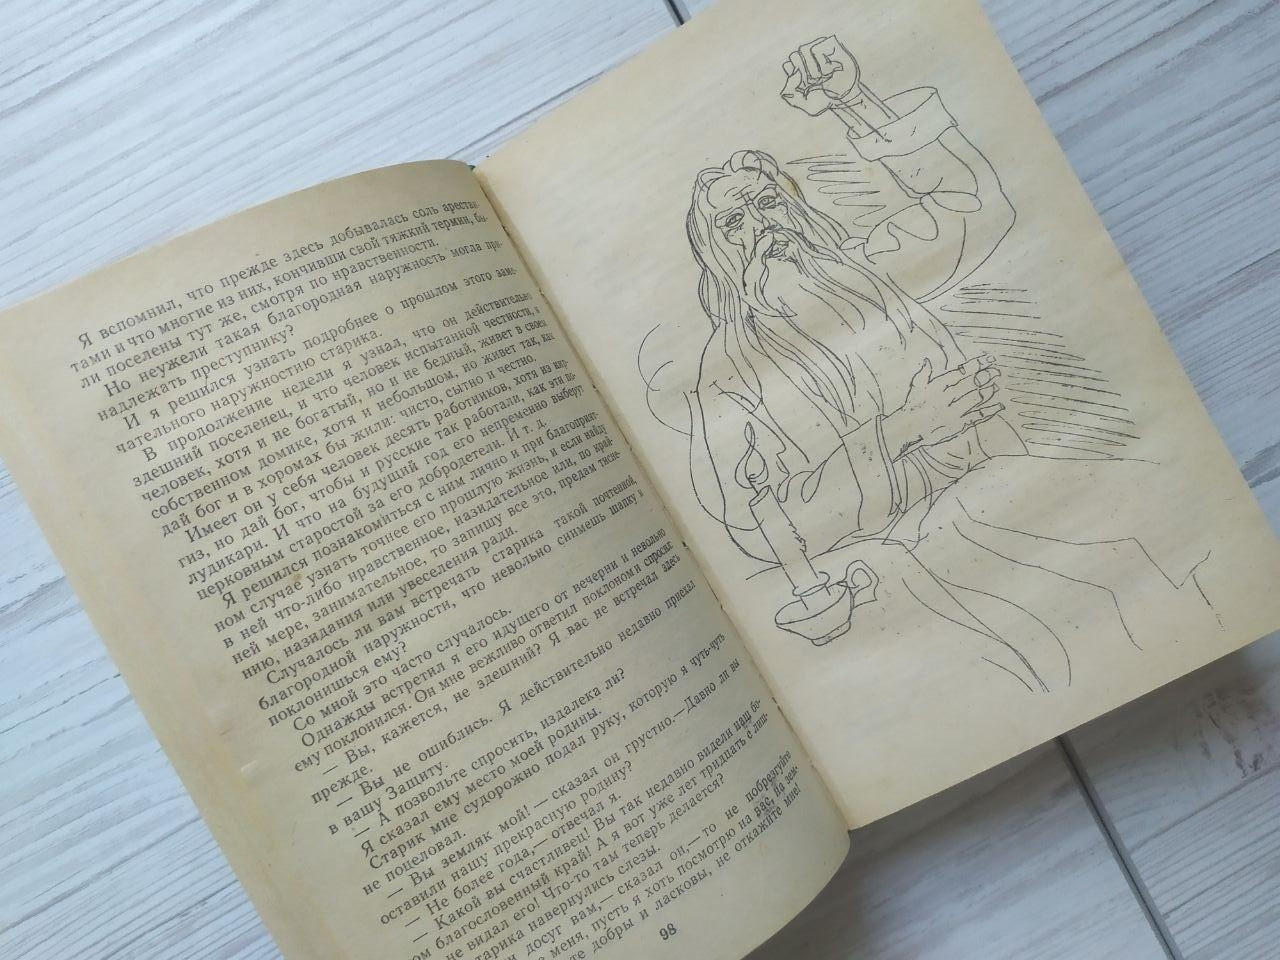 Я вспомнил, что прежде здесь добывалась соль арестан-
тами и что многие из них, кончивши свой тяжкий термин, бы-
ли поселены тут же, смотря по нравственности.
Но неужели такая благородная наружность могла при-
надлежать преступнику?
И я решился узнать подробнее о прошлом этого заме-
чательного наружностию старика.
В продолжение недели я узнал, что он действительно
здешний поселенец, и что человек испытанной честности, и
человек, хотя и не богатый, но и не бедный, живет в своем
собственном домике, хотя и небольшом, но живет так, как
дай бог и в хоромах бы жили: чисто, сытно и честно.
Имеет он у себя человек десять работников, хотя из кир-
гиз, но дай бог, чтобы и русские так работали, как эти по-
лудикари. И что на будущий год его непременно выберут
церковным старостой за его добродетели. И т. д.
Я решился познакомиться с ним лично и при благоприят-
ном случае узнать точнее его прошлую жизнь, и если найду
в ней что-либо нравственное, назидательное или, по край-
ней мере, занимательное, то запишу все это, предам тисне-
нию, назидания или увеселения ради.
Случалось ли вам встречать старика такой почтенной,
благородной наружности, что невольно снимешь шапку и
поклонишься ему?
Со мной это часто случалось.
Однажды встретил я его идущего от вечерни и невольно
ему поклонился. Он мне вежливо ответил поклоном и спросил:
— Вы, кажется, не здешний? Я вас не встречал здесь
прежде.
— Вы не ошиблись. Я действительно недавно приехал
в вашу Защиту.
— А позвольте спросить, издалека ли?
Я сказал ему место моей родины.
Старик мне судорожно подал руку, которую я чуть-чуть
не поцеловал.
— Вы земляк мой! — сказал он грустно.— Давно ли вы
оставили нашу прекрасную родину?
— Не более года,— отвечал я.
— Какой вы счастливец! Вы так недавно видели наш бо-
гом благословенный край! А я вот уже лет тридцать с лиш-
не видал его! Что-то там теперь делается?
старика навернулись слезы.
досуг вам,— сказал он,— то не побрезгуйте
меня, пусть я хоть посмотрю на вас, на зем-
те добры и ласковы, не откажите мне!
98